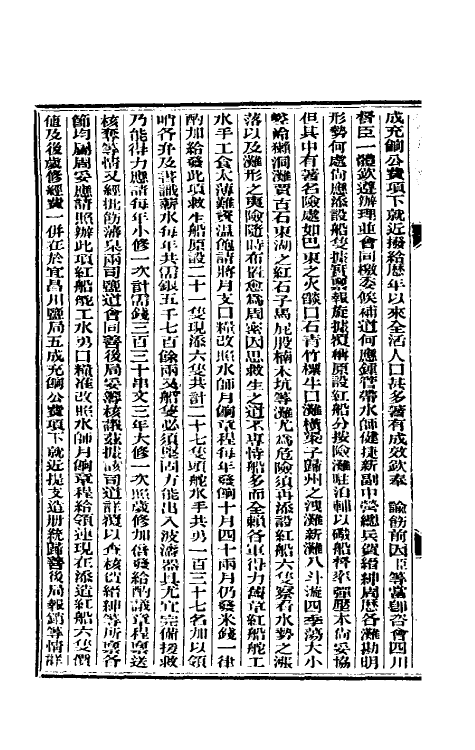 成充餉公費項下就近撥給歷年以來全活人口甚多著有成效欽奉　諭飭前因臣等當卽咨會四川
督臣一體欽遵辦理並會同檄委候補道何應鍾管帶水師健捷新副中營總兵賀縉紳周歷各灘勘明
形勢何處尚應添設船隻據實稟報旋據覆稱原設紅船分按險灘駐泊輔以礮船梭乘彈壓本尚妥協
但其中有著名險處如巴東之火燄口石青竹標牛口灘橫梁子歸州之洩灘新灘八斗流四季蕩大小
灘洞灘賈古石東湖之紅石子馬屁股楠木坑等灘尤爲危險須再添設紅船六隻察看水勢之漲
落以及灘形之夷險隨時布置愈爲周密因思救生之道不専恃船多而全賴各軍得力舊章紅船舵工
水手工食太薄難資溫飽請將月支口糧改照水師月餉章程每年發餉十月四十兩月仍發米錢一律
酌加給發此項救生船原設二十一隻現添六隻共計二十七隻頭舵水手共勇一百三十七名加以領
哨各弁及書識薪水每年共需銀五千七百餘兩又船隻必須堅固方能出入波濤器具尤宜完備援救
乃能得力應請每年小修一次計需錢三百三十串文三年大修一次照歲修加倍發給酌議章程稟送
核奪等情又經批飭藩臬兩司鹽道會同善後局妥籌核議茲據該司道詳覆以查核賀縉紳等所稟各
節均屬周妥應請照辦此項紅船舵工水勇口糧准改照水師月餉章程給領連現在添造紅船六隻價
値及後歲修經費一併在於宜昌川鹽局五成充餉公費項下就近提支造册統歸善後局報銷等情詳